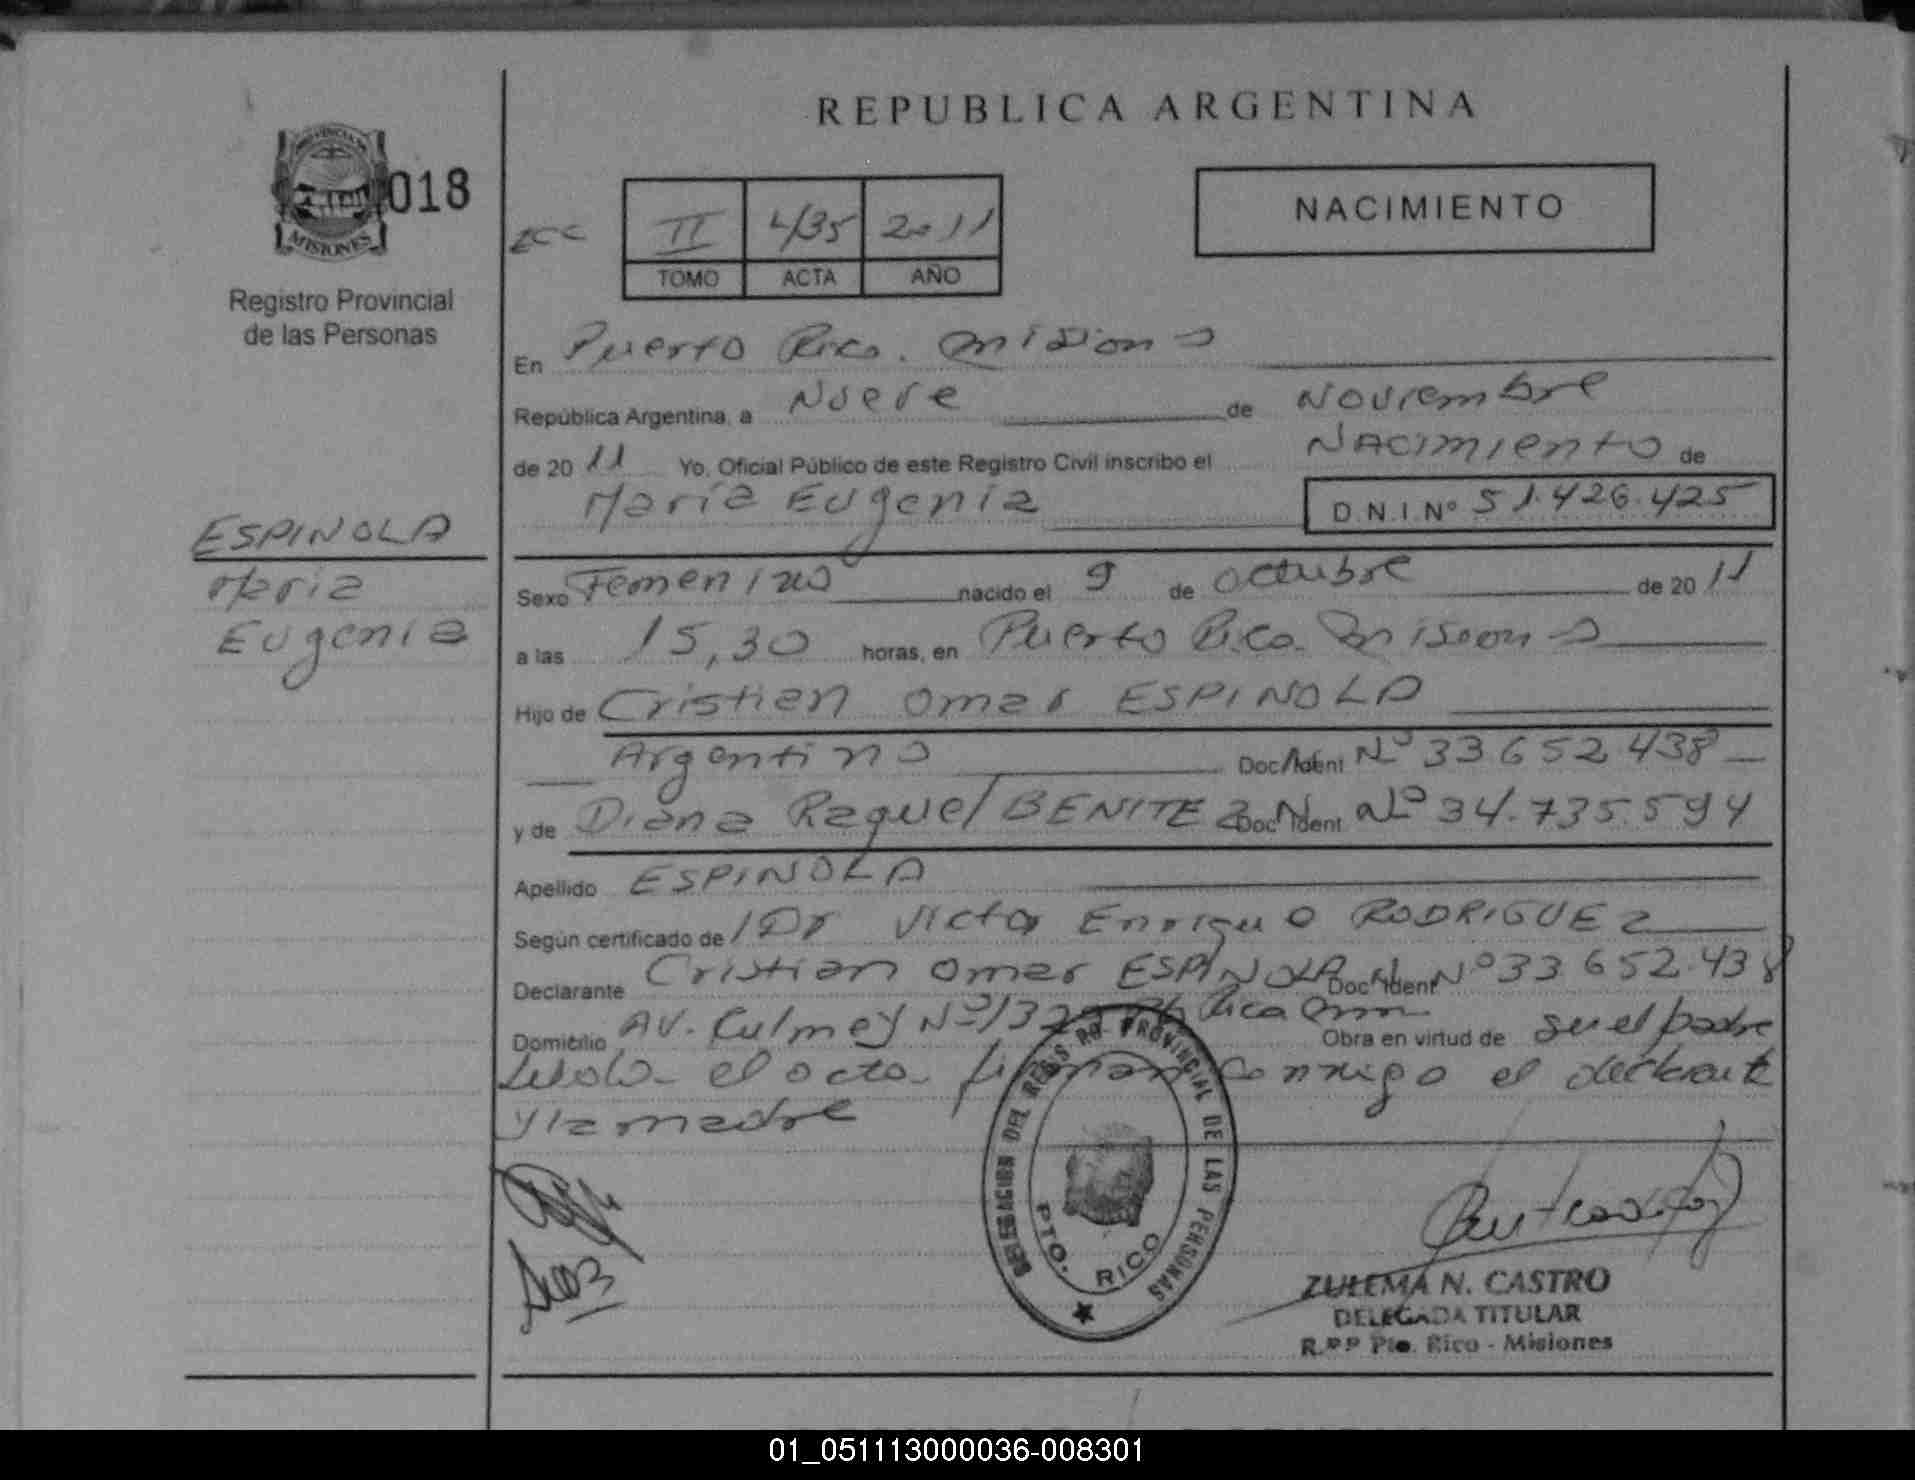 REPUBLICA ARGENTINA
PROVINCIA DE
MISIONES
018
Registro Provincial
de las Personas
II 435 2011
TOMO ACTA AÑO
NACIMIENTO
En Puerto Rico. Misiones
República Argentina, a Nueve de Noviembre
de 20 11 Yo, Oficial Público de este Registro Civil inscribo el NACIMIENTO de
María Eugenia D.N.I. Nº 51.426.425
ESPINOLA
María
Eugenia
Sexo Femenino nacido el 9 de octubre de 20 11
a las 15,30 horas, en Puerto Rico. Misiones
Hijo de Cristian Omar ESPINOLA
Argentino Doc. Ident Nº 33 652 438
y de Diana Raquel BENITEZ Doc. Ident Nº 34.735.594
Apellido ESPINOLA
Según certificado del Dr Victor Enrique RODRIGUEZ
Declarante Cristian Omar ESPINOLA Doc. Ident Nº 33 652.438
Domicilio AV. Culmey Nº Rico Obra en virtud de ser el padre
Leída el acta firman conmigo el declarante
y la madre
DELEGACION DEL REGISTRO PROVINCIAL DE LAS PERSONAS
PTO. RICO
ZULEMA N. CASTRO
DELEGADA TITULAR
R.P.P Pto. Rico - Misiones
01_051113000036-008301